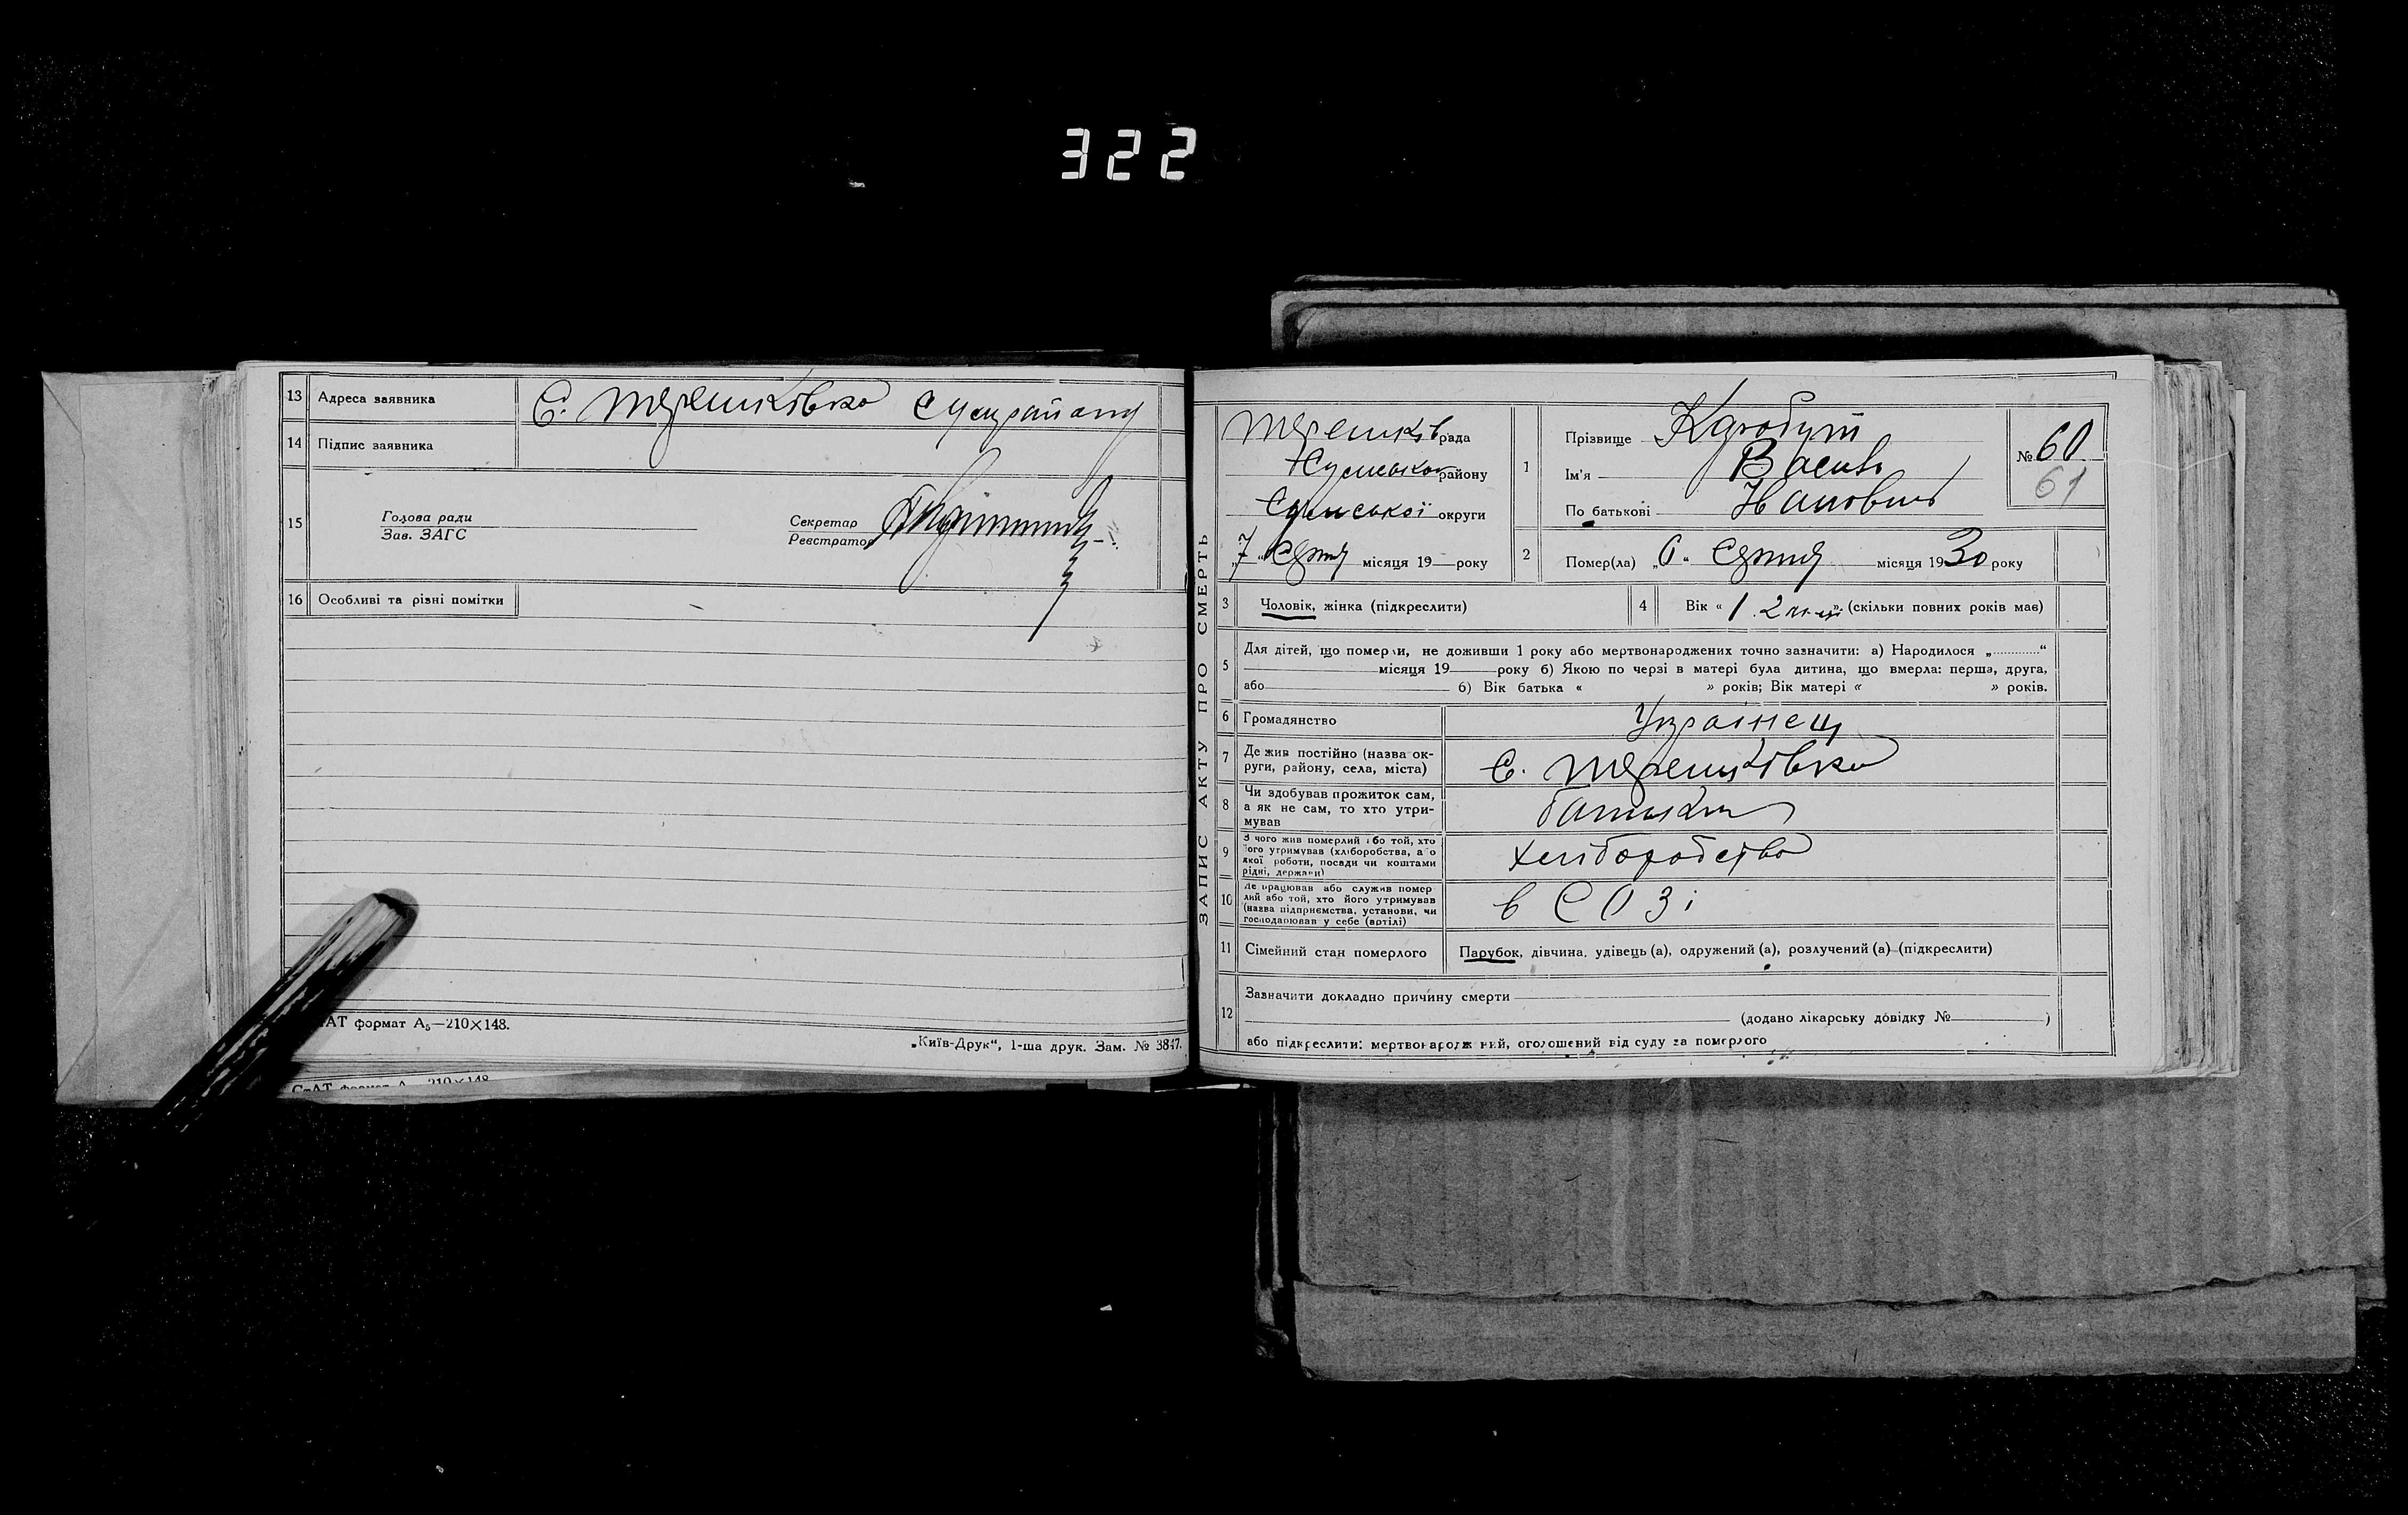 322
13 Адреса заявника С. Терешківка Сумрайону
14 Підпис заявника
15 Голова ради
Зав. ЗАГС
Секретар
Реєстратор
16 Особливі та різні помітки
АТ формат А₅—210×148.
„Київ-Друк“, 1-ша друк. Зам. № 3847.
СтАТ формат А 210×148
ЗАПИС АКТУ ПРО СМЕРТЬ
Терешків рада
Сумсько району
Сумської округи
„7“ Серпня місяця 19 року
1 Прізвище
Ім'я Василь
По батькові
№ 60
61
2 Помер(ла) „6“ Серпня місяця 1930 року
3 Чоловік, жінка (підкреслити)
4 Вік « 1. 2 м-ці » (скільки повних років має)
5 Для дітей, що померли, не доживши 1 року або мертвонароджених точно зазначити: а) Народилося „ “
місяця 19 року б) Якою по черзі в матері була дитина, що вмерла: перша, друга,
або б) Вік батька « » років; Вік матері « » років.
6 Громадянство Українец
7 Де жив постійно (назва ок-
руги, району, села, міста) С. Терешківка
8 Чи здобував прожиток сам,
а як не сам, то хто утри-
мував Батьки
9 З чого жив померлий або той, хто
його утримував (хліборобства, або
якої роботи, посади чи коштами
рідні, держави) Хліборобство
10 Де працював або служив помер
лий або той, хто його утримував
(назва підприємства, установи, чи
господарював у себе (артілі) в СОЗі
11 Сімейний стан померлого Парубок, дівчина, удівець (а), одружений (а), розлучений (а) (підкреслити)
12 Зазначити докладно причину смерти
(додано лікарську довідку № )
або підкреслити: мертвонароджений, оголошений від суду за померлого